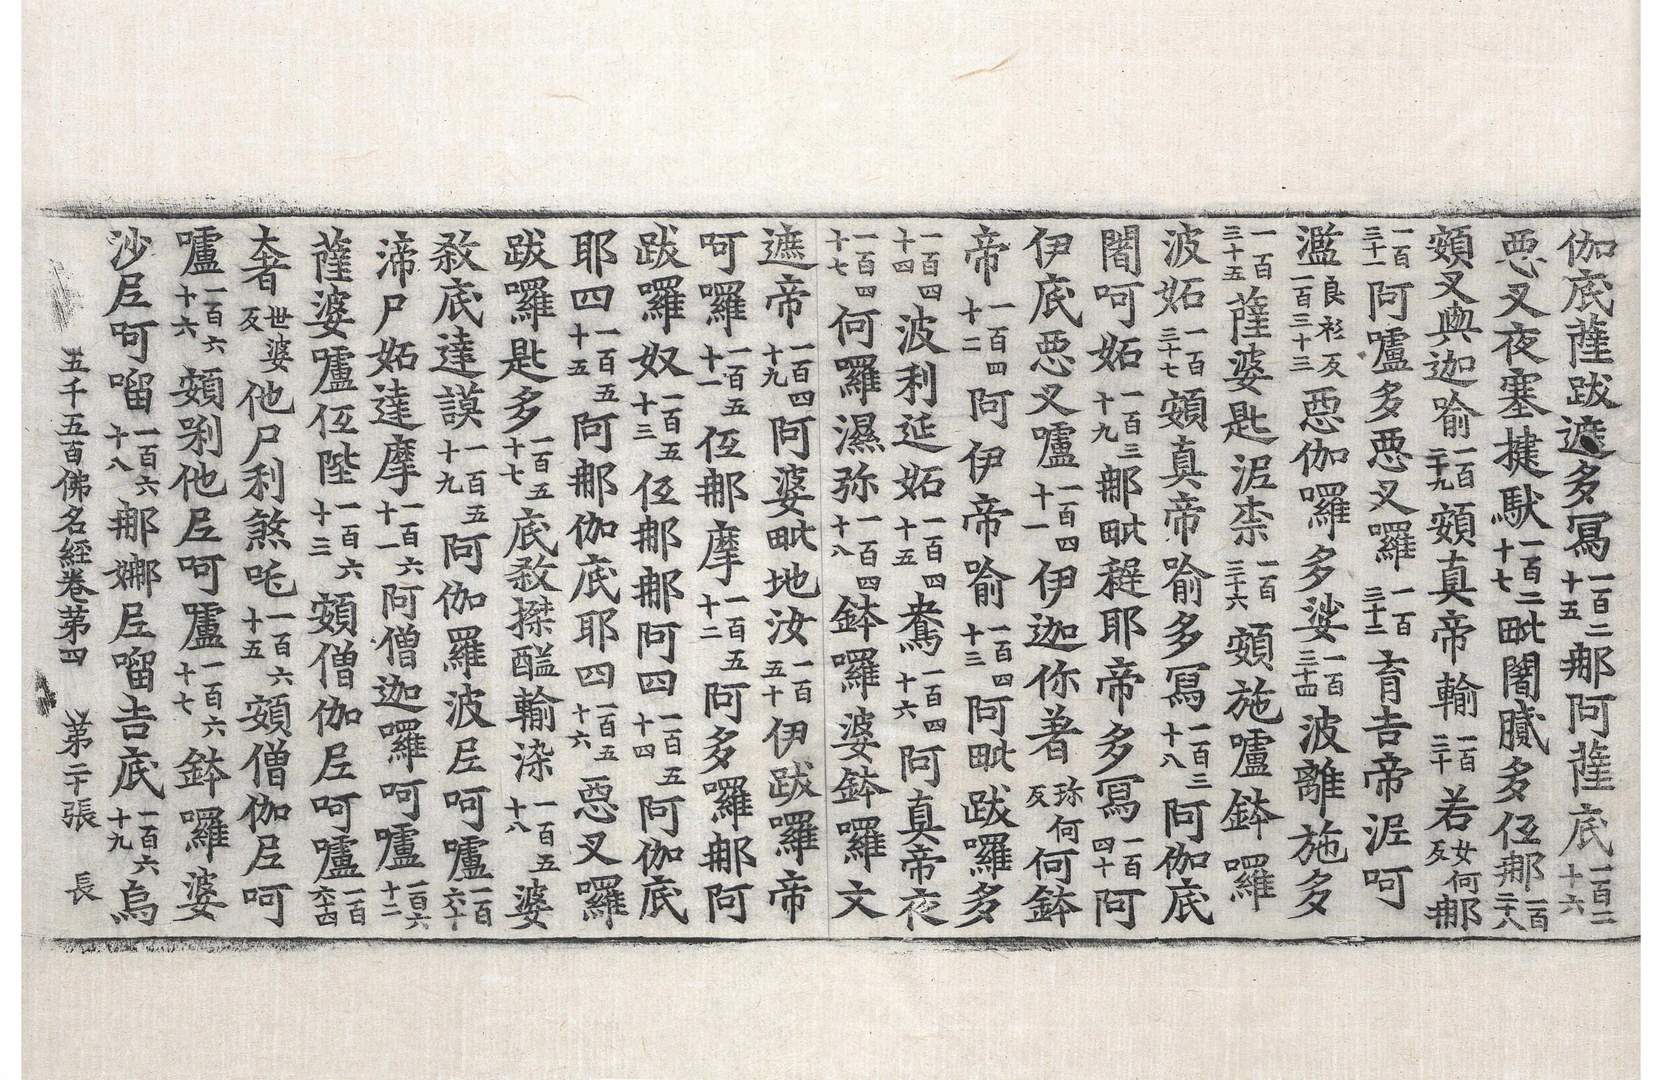 伽底薩跋遮多寫一百二十五那阿薩底一百二十六
惡叉夜塞揵馱一百二十七毗闍膩多伍那一百二十八
頞叉與迦喻一百二十九頞真帝輸一百三十若女何反那
一百三十一阿嚧多惡叉囉一百三十二育吉帝泥呵
濫良衫反一百三十三惡伽囉多娑一百三十四波離施多
一百三十五薩婆匙泥柰一百三十六頞施嚧鉢囉
波妬一百三十七頞真帝喻多寫一百三十八阿伽底
闍呵妬一百三十九那毗耶帝多寫一百四十阿
伊底惡叉嚧一百四十一伊迦你著珎何反何鉢
帝一百四十二阿伊帝喻一百四十三阿毗跋囉多
一百四十四波利延妬一百四十五鴦一百四十六阿真帝夜
一百四十七何囉濕弥一百四十八鉢囉婆鉢囉文
遮帝一百四十九阿婆毗地汝一百五十伊跋囉帝
呵囉一百五十一伍那摩一百五十二阿多囉那阿
跋囉奴一百五十三伍那那阿四一百五十四阿伽底
耶四一百五十五阿那伽底耶四一百五十六惡叉囉
跋囉匙多一百五十七底敎醯輸染一百五十八婆
敎底達謨一百五十九阿伽羅波尼呵嚧一百六十
渧尸妬達摩一百六十一阿僧迦囉呵嚧一百六十二
薩婆嚧伍陛一百六十三頞僧伽尼呵嚧一百六十四
奢世婆反他尸利煞吒一百六十五頞僧伽尼呵
嚧一百六十六頞剁他尼呵嚧一百六十七鉢囉婆
沙尼呵㗚一百六十八那娜尼㗚吉底一百六十九烏
五千五百佛名經卷苐四 苐二十張 長